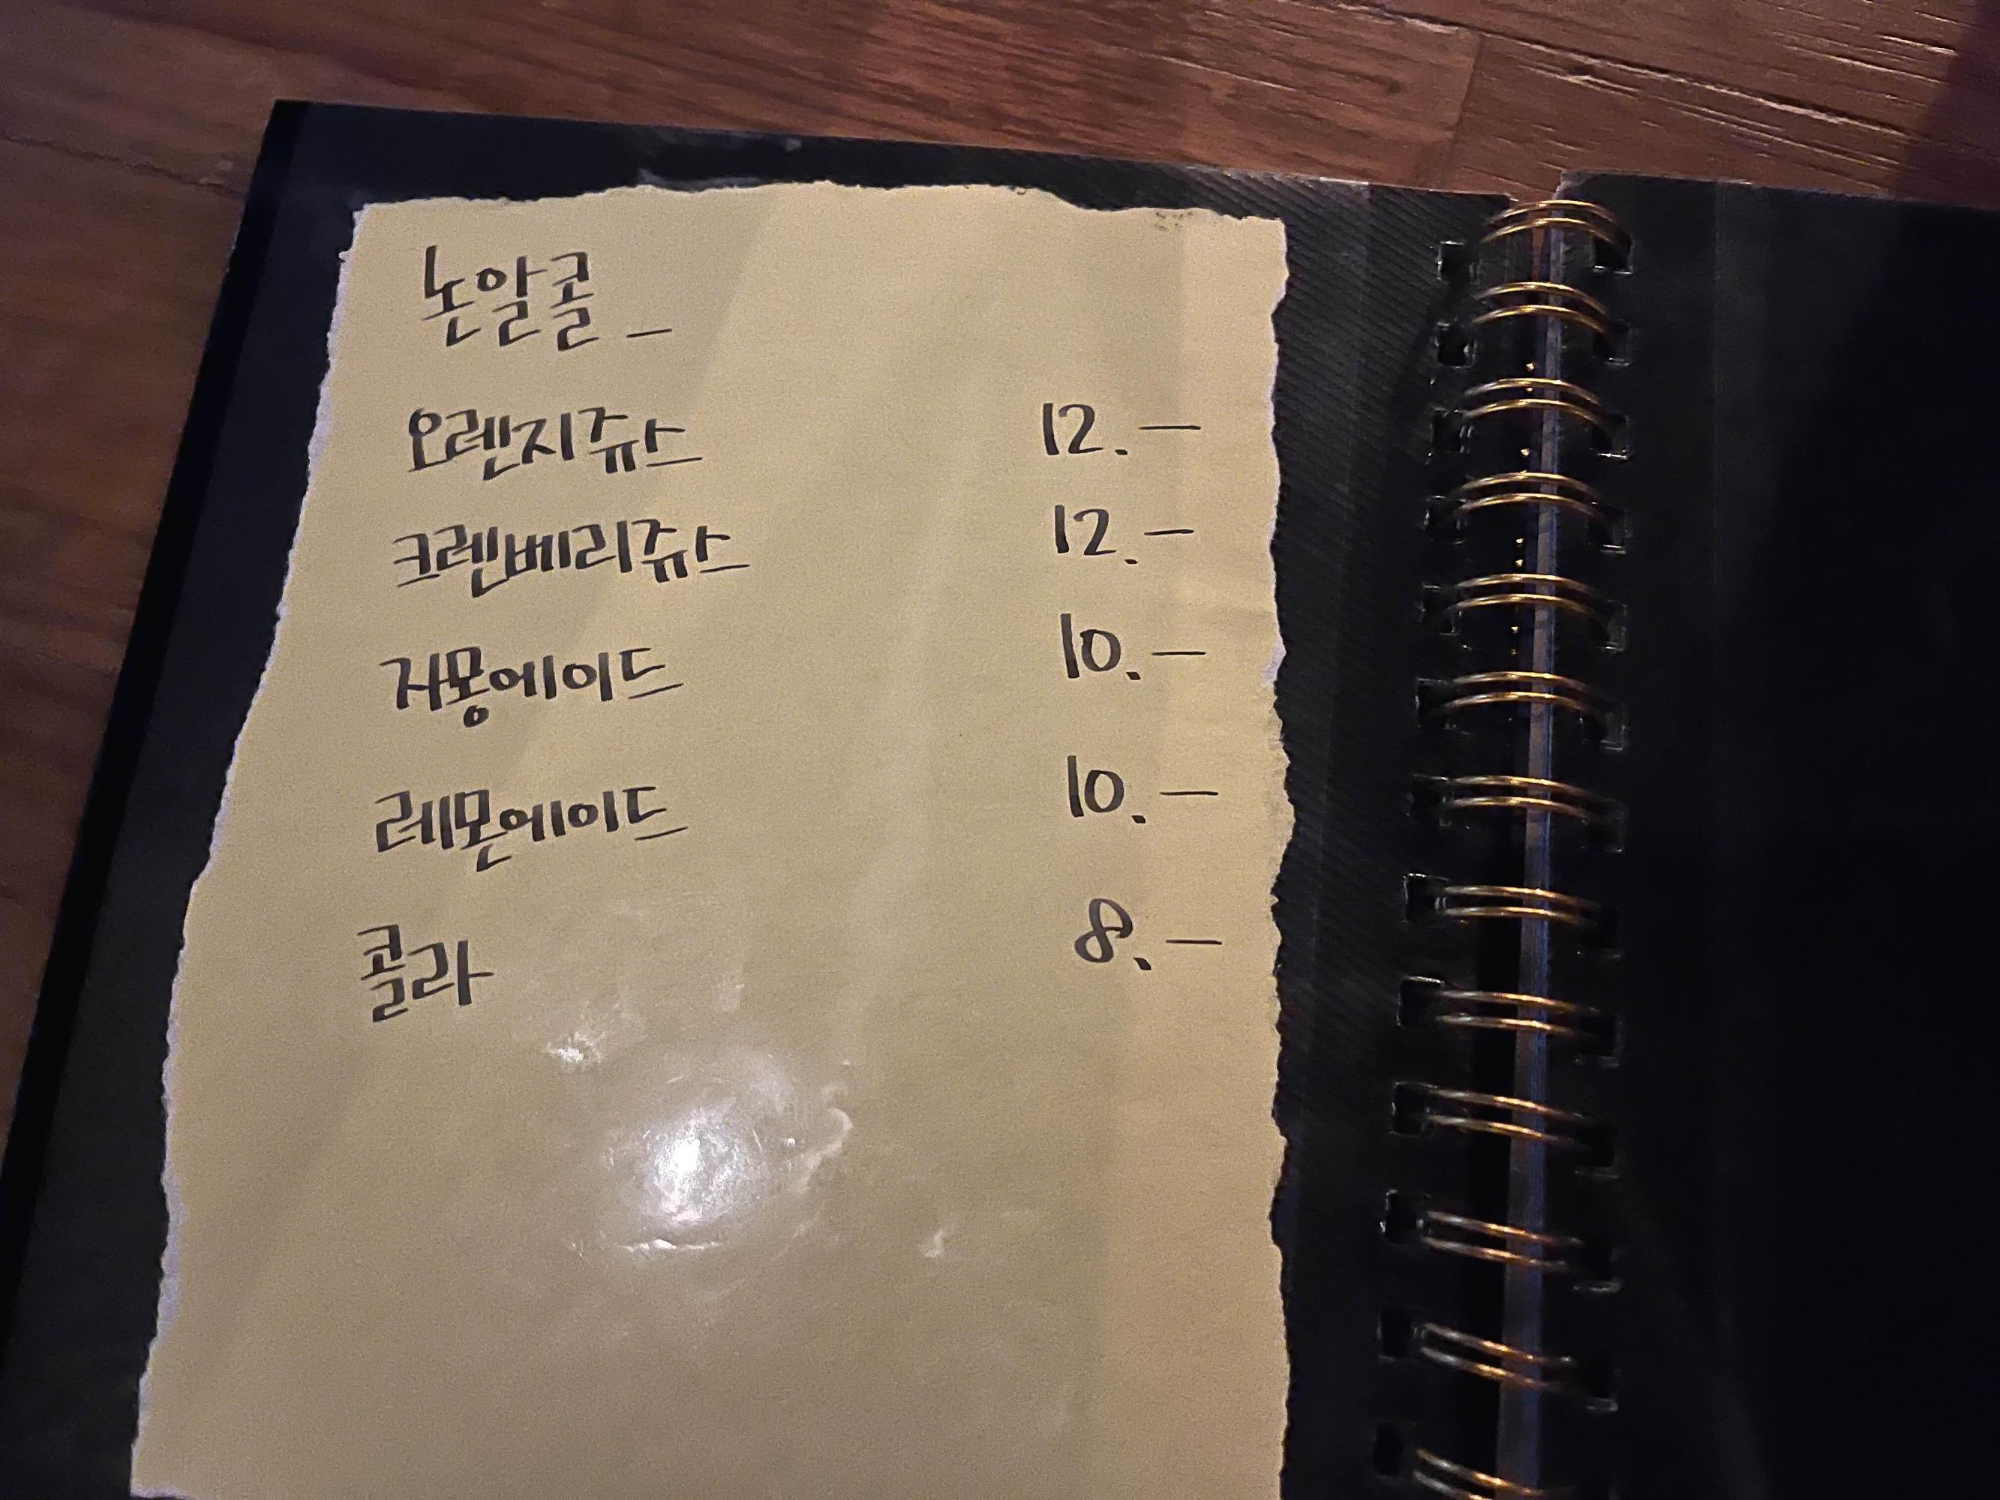 논알콜_
오렌지쥬스 12.-
크렌베리쥬스 12.-
자몽에이드 10.-
레몬에이드 10.-
콜라 8.-